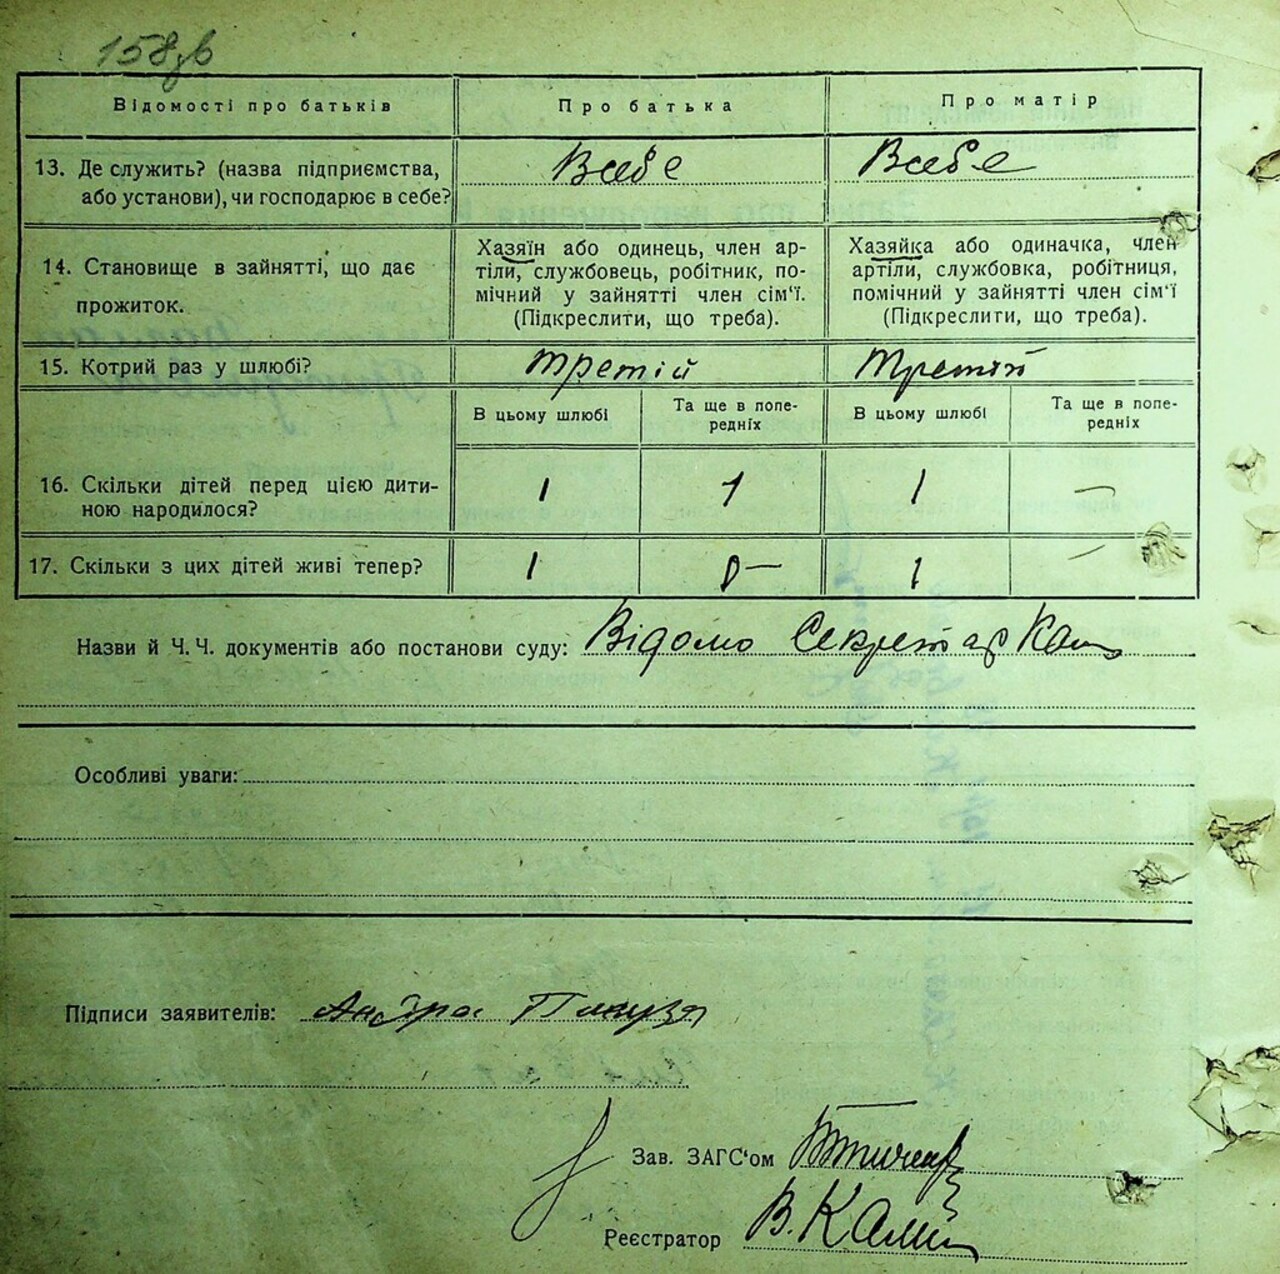 158зв
Відомості про батьків Про батька Про матір
13. Де служить? (назва підприємства, Всебе Всебе
або установи), чи господарює в себе?
Хазяїн або одинець, член ар- Хазяйка або одиначка, член
14. Становище в зайнятті, що дає тіли, службовець, робітник, по- артілі, службовка, робітниця,
прожиток. мічний у зайнятті член сім'ї. помічний у зайнятті член сім'ї
(Підкреслити, що треба). (Підкреслити, що треба).
15. Котрий раз у шлюбі? третій третій
В цьому шлюбі Та ще в попе- В цьому шлюбі Та ще в попе-
редніх редніх
16. Скільки дітей перед цією дити- 1 1 1 —
ною народилося?
17. Скільки з цих дітей живі тепер? 1 0— 1 —
Назви й Ч. Ч. документів або постанови суду: Відомо Секретар
Особливі уваги:
Підписи заявителів:
Зав. ЗАГС'ом
Реєстратор В.